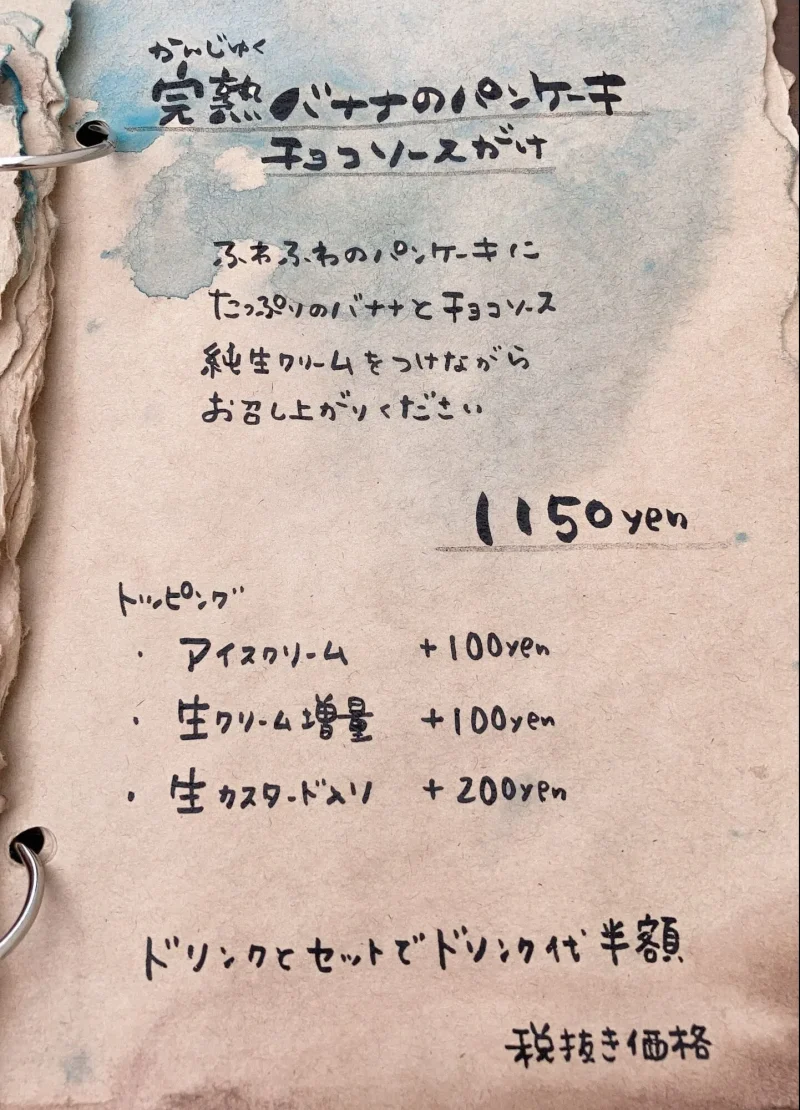 かんじゅく
完熟バナナのパンケーキ
チョコソースがけ
ふわふわのパンケーキに
たっぷりのバナナとチョコソース
純生クリームをつけながら
お召し上がりください
1150yen
トッピング
・ アイスクリーム +100yen
・ 生クリーム増量 +100yen
・ 生カスタード入り +200yen
ドリンクとセットでドリンク代 半額
税抜き価格